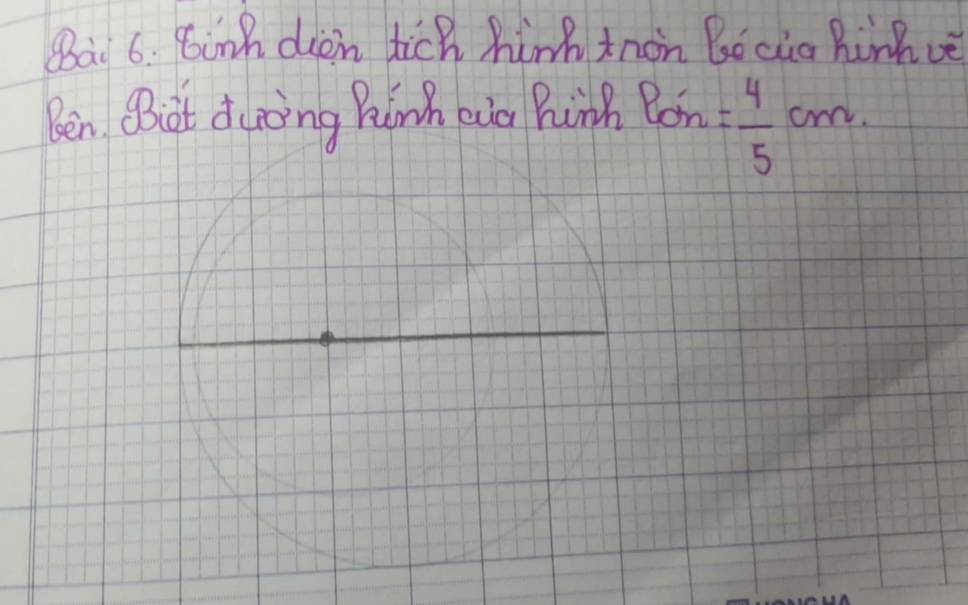 Bài 6. Tính diện tích hình tròn bé của hình vẽ
bên. Biết đường kính của hình lớn = 4/5 cm.
HONGHA